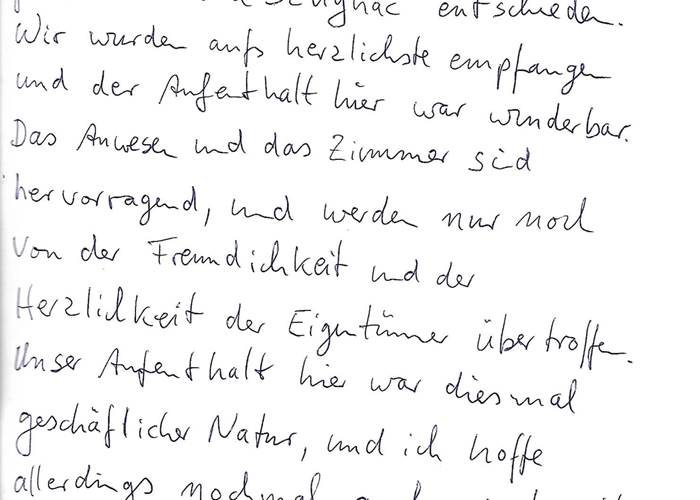 entschieden.
Wir wurden aufs herzlichste empfangen
und der Aufenthalt hier war wunderbar.
Das Anwesen und das Zimmer sind
hervorragend, und werden nur noch
von der Freundlichkeit und der
Herzlichkeit der Eigentümer übertroffen.
Unser Aufenthalt hier war diesmal
geschäftlicher Natur, und ich hoffe
allerdings nochmal